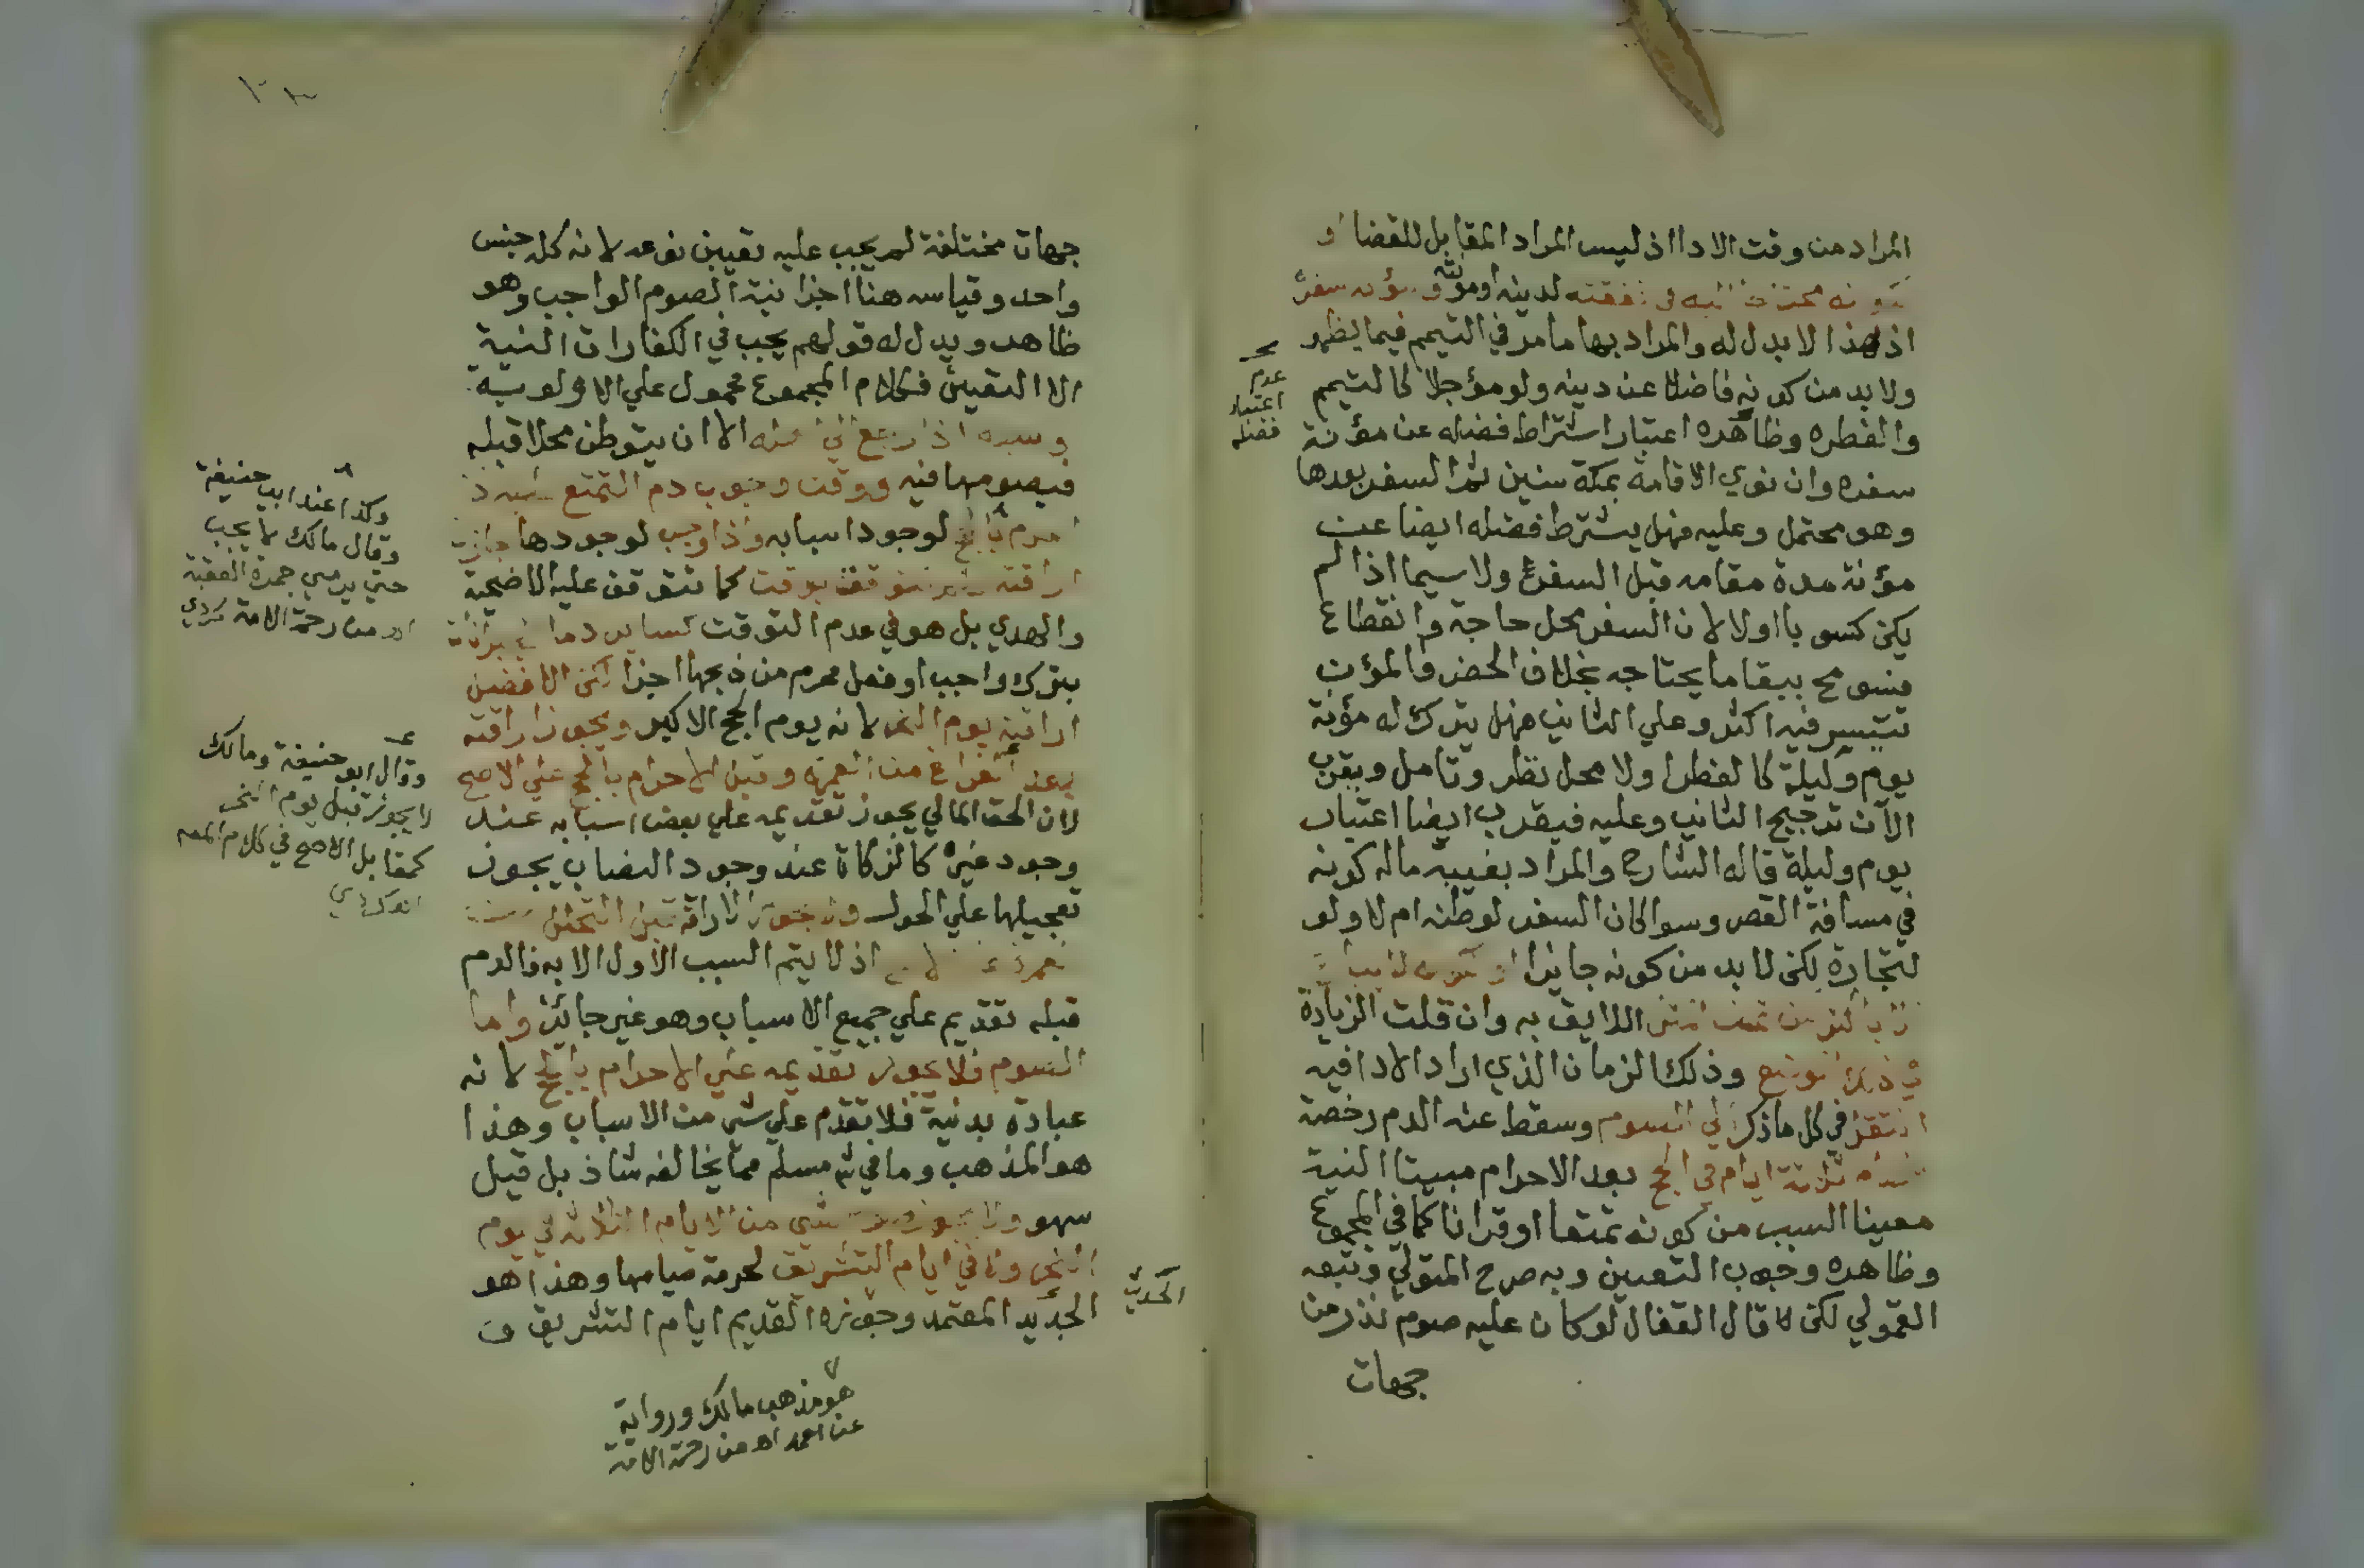 المراد من وقت الادا اذ ليس المراد المقابل للقضا او
لدينه او مؤنة سفره
اذ هذا لا بدل له والمراد بها ما مر في التيمم فيما يظهر
ولا بد من كونه فاضلا عن دينه ولو مؤجلا كالتيمم
والفطره وظاهره اعتبار اشتراط فضله عن مؤنة
سفره وان نوي الاقامة بمكة سنين ثم السفر بعدها
وهو محتمل وعليه فهل يشترط فضله ايضا عن
مؤنة مدة مقامه قبل السفر ولا سيما اذا لم
يكن كسوبا او لا لان السفر محل حاجة وانقطاع
فسومح ببقا ما يحتاجه بخلاف الحضر والمؤن
تتيسر فيه اكثر وعلي الثاني فهل يترك له مؤنة
يوم وليلة كالفطرا ولا محل نظر وتامل ويقرب
الآن ترجيح الثاني وعليه فيقرب ايضا اعتبار
يوم وليلة قاله الشارح والمراد بغيبة ماله كونه
في مسافة القصر وسوا كان السفر لوطنه ام لا ولو
لتجارة لكن لا بد من كونه جائزا
اللايق به وان قلت الزيادة
وذلك الزمان الذي اراد الادا فيه
انتقل في كل ما ذكر الي الصوم وسقط عنه الدم رخصة
ثلاثة ايام في الحج بعد الاحرام مبيتا النية
معينا السبب من كونه تمتعا او قرانا كما في المجموع
وظاهره وجوب التعيين وبه صرح المتولي وتبعه
القمولي لكن لا قال القفال لو كان عليه صوم نذر من
جهات
عدم
اعتبار
فضله
جهات مختلفة لم يجب عليه تعيين نوعه لانه كله جنس
واحد وقياسه هنا اجزا نية الصوم الواجب وهو
ظاهر ويدل له قولهم يجب في الكفارات النية
الا التعيين فكلام المجموع محمول علي الاولوية
وسبعة اذا رجع الي اهله الا ان يتوطن محلا قبله
فيصومها فيه ووقت وجوب دم التمتع
احرم بالحج لوجود اسبابه واذا وجب لوجودها جازت
اراقته ولم تتوقف بوقت كما تتوقف عليه الاضحية
والهدي بل هو في عدم التوقت كساير دما الجبرانات
بترك واجب او فعل محرم من ذبحها اجزا لكن الافضل
اراقته يوم النحر لانه يوم الحج الاكبر ويجوز اراقته
بعد الفراغ من العمرة وقبل الاحرام بالحج علي الاصح
لان الحق المالي يجوز تقديمه علي بعض اسبابه عند
وجود غيره كالزكاة عند وجود النصاب يجوز
تعجيلها علي الحول ولا تجوز الاراقة قبل التحلل من
العمرة اذ لا يتم السبب الاول الا به فالدم
قبله تقديم علي جميع الاسباب وهو غير جائز واما
الصوم فلا يجوز تقديمه علي الاحرام بالحج لانه
عبادة بدنية فلا تقدم علي شي من الاسباب وهذا
هو المذهب وما في شم مسلم مما يخالفه شاذ بل قيل
سهو ولا يجوز صوم شي من الايام الثلاثة في يوم
النحر ولا في ايام التشريق لحرمة صيامها وهذا هو
الجديد المعتمد وجوزه القديم ايام التشريق و
وكذا عند ابي حنيفة
وقال مالك لا يجب
حتي يرمي جمرة العقبة
اهـ من رحمة الامة كردي
وقال ابو حنيفة ومالك
لا يجوز قبل يوم النحر
كمقابل الاصح في كلام المص
اهـ كردي
هو مذهب مالك ورواية
عن احمد اهـ من رحمة الامة